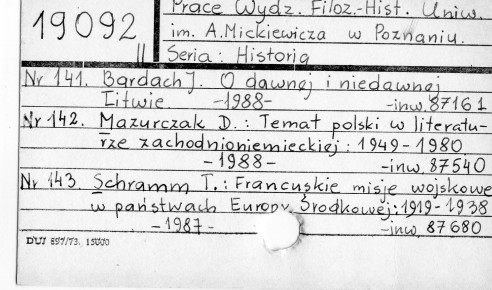 Prace Wydz. Filoz.-Hist. Uniw.
19092
im. A. Mickiewicza w Poznaniu.
II
Seria: Historia
Nr 141. Bardach J. O dawnej i niedawnej
Litwie. -1988- -inw. 87161
Nr 142. Mazurczak D.: Temat polski w literatu-
rze zachodnioniemieckiej: 1949-1980
-1988- -inw. 87540
Nr 143. Schramm T.: Francuskie misje wojskowe
w państwach Europy Środkowej: 1919-1938
-1987- -inw. 87680
DUJ 597/73. 15000